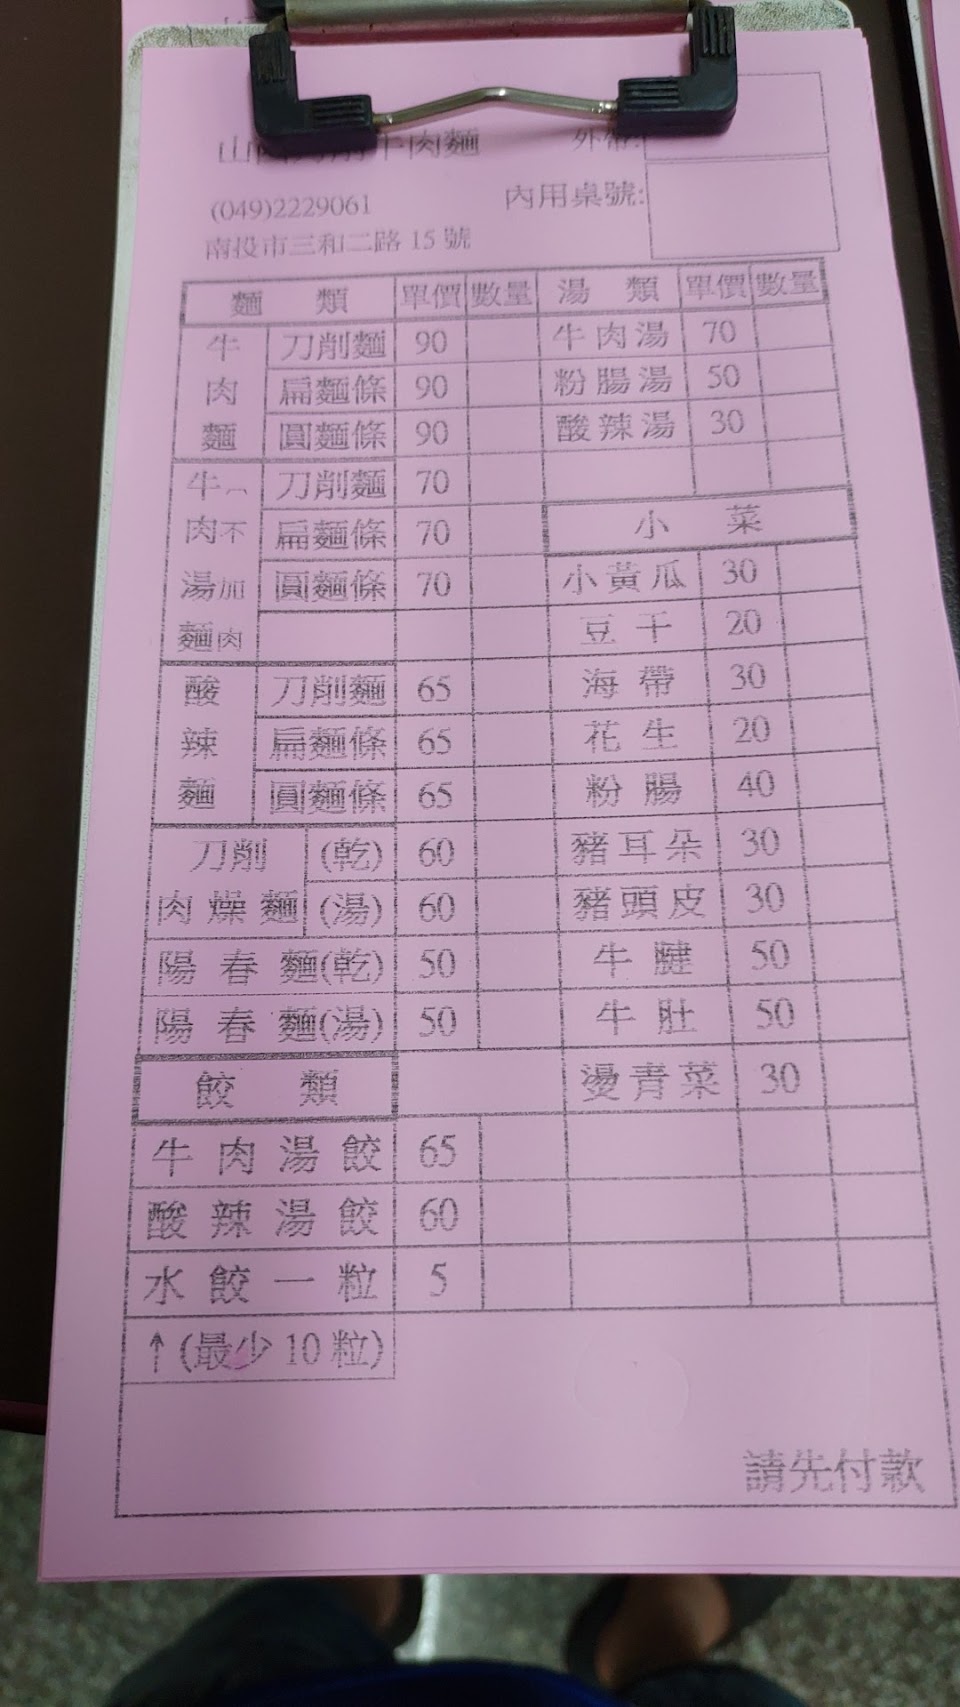 牛肉麵
(049)2229061
內用桌號:
南投市三和二路 15 號
麵 類 單價 數量 湯 類 單價 數量
牛肉麵 刀削麵 90 牛肉湯 70
扁麵條 90 粉腸湯 50
圓麵條 90 酸辣湯 30
牛肉湯麵(不加肉 刀削麵 70
扁麵條 70 小 菜
圓麵條 70 小黃瓜 30
豆干 20
酸辣麵 刀削麵 65 海帶 30
扁麵條 65 花生 20
圓麵條 65 粉腸 40
刀削肉燥麵 (乾) 60 豬耳朵 30
(湯) 60 豬頭皮 30
陽春麵(乾) 50 牛腱 50
陽春麵(湯) 50 牛肚 50
餃 類 燙青菜 30
牛肉湯餃 65
酸辣湯餃 60
水餃一粒 5
↑(最少 10 粒)
請先付款